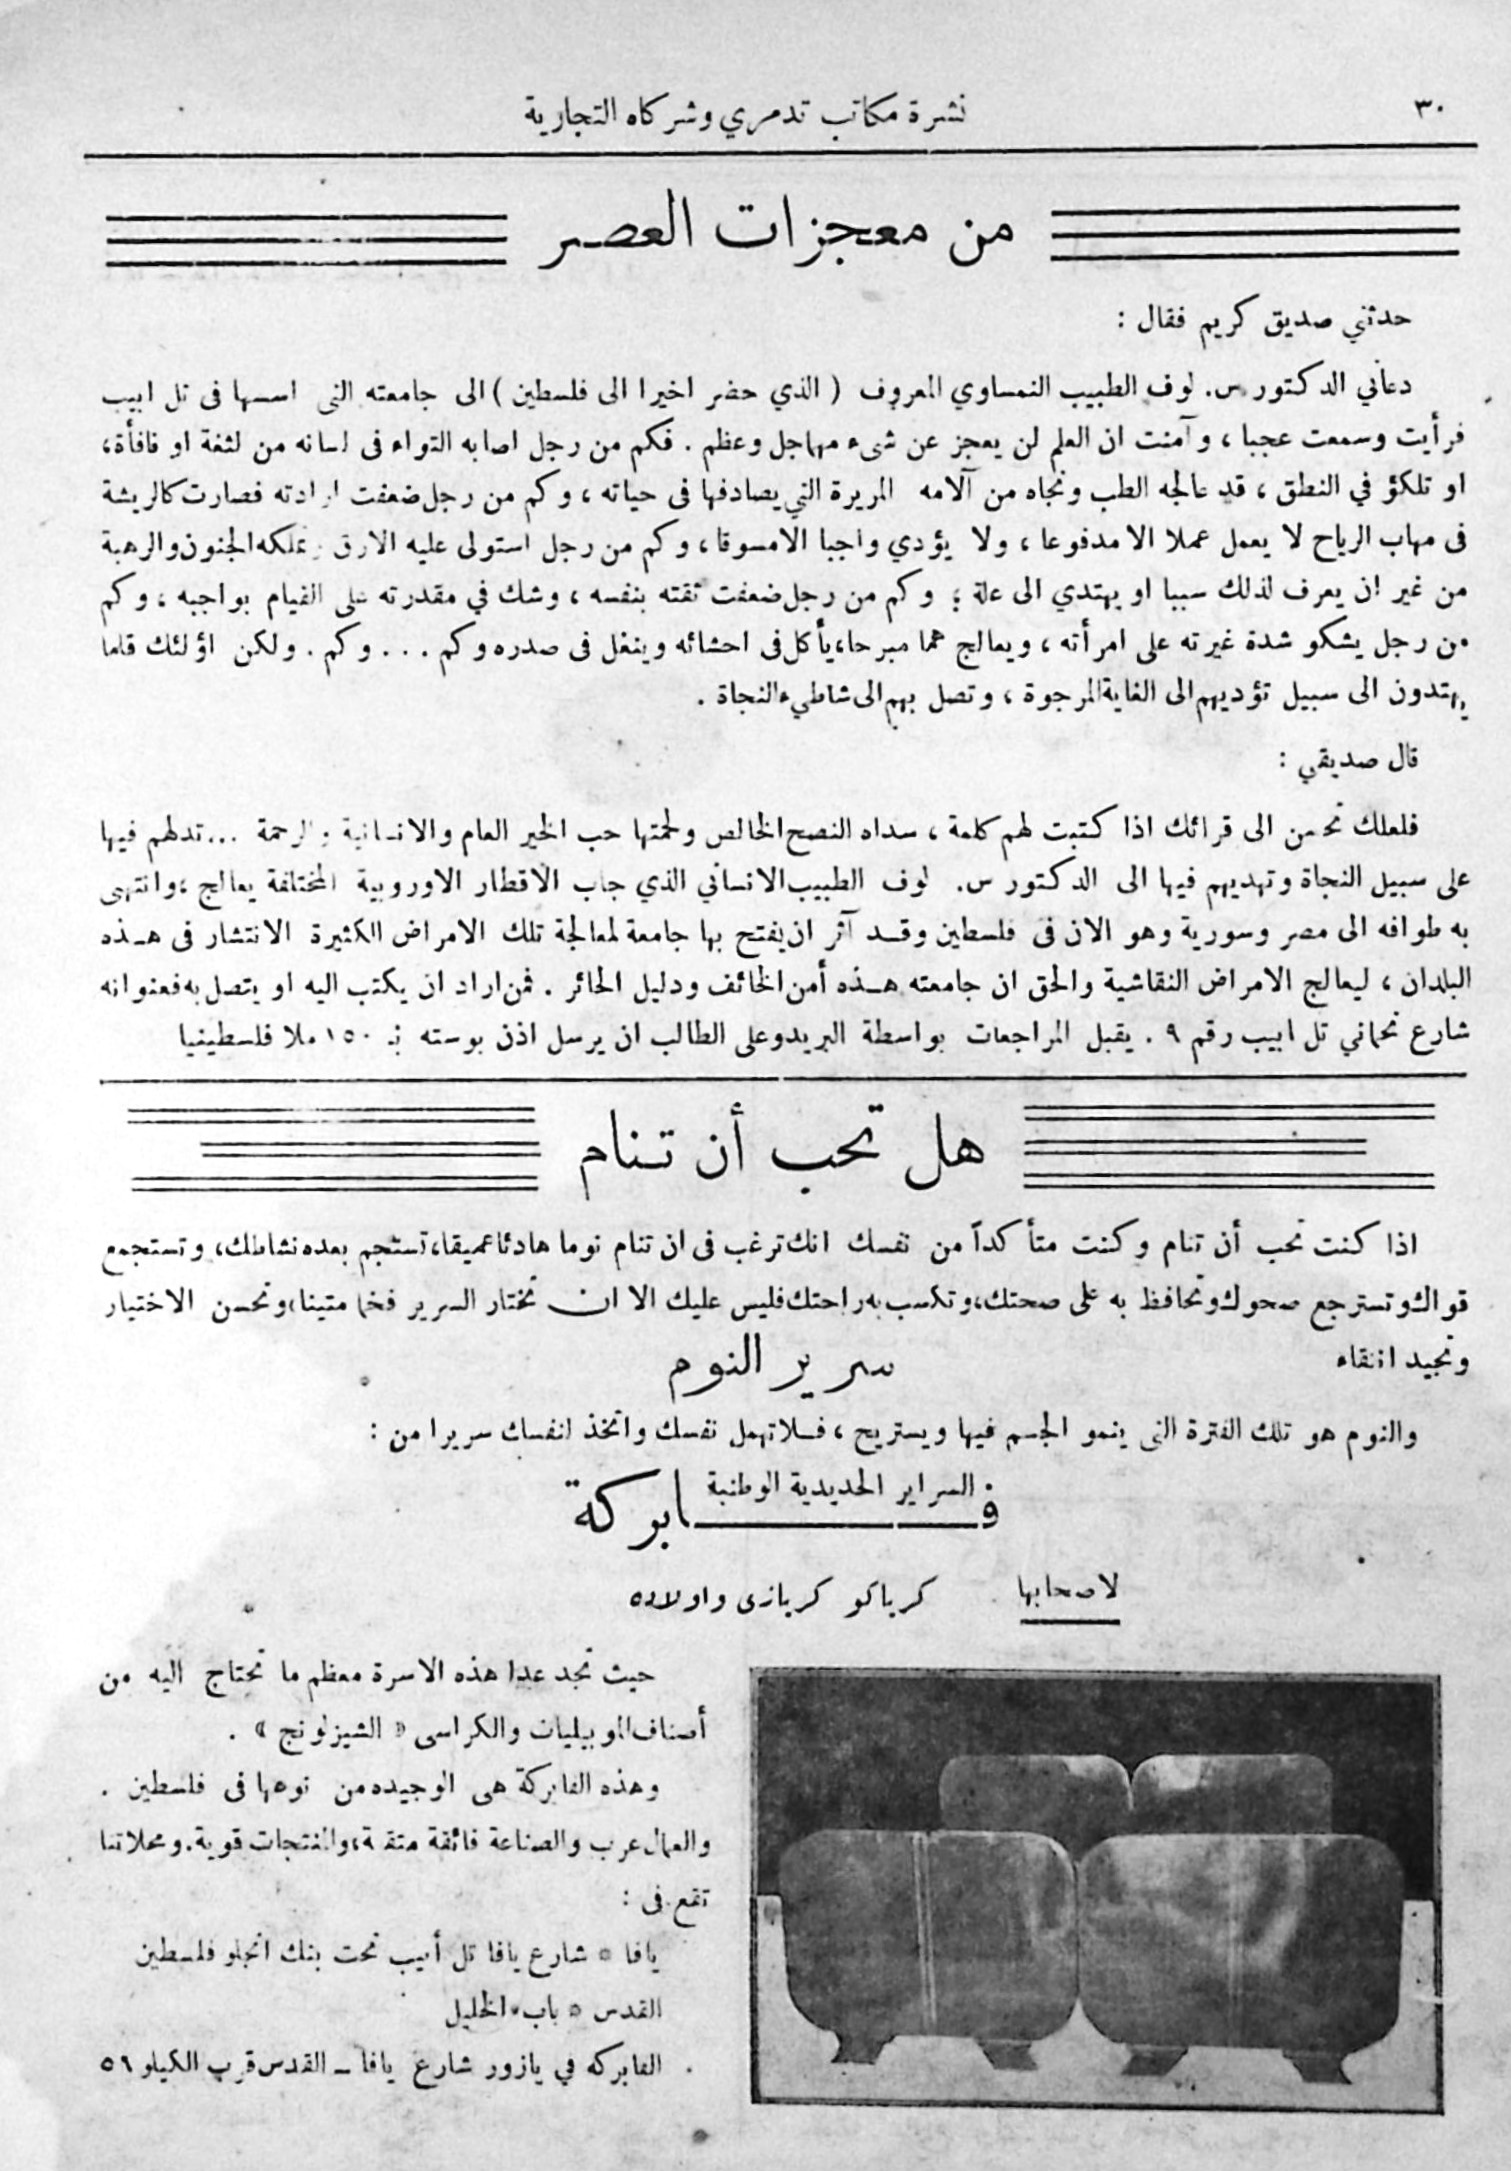 ٣٠
نشرة مكاتب تدمري وشركاه التجارية
من معجزات العصر
حدثني صديق كريم فقال :
دعاني الدكتور س. لوف الطبيب النمساوي المعروف ( الذي حضر اخيرا الى فلسطين ) الى جامعته التى اسسها فى تل ابيب
فرأيت وسمعت عجبا ، وآمنت ان العلم لن يعجز عن شىء مهما جل وعظم . فكم من رجل اصابه التواء فى لسانه من لثغة او فافأة،
او تلكؤ في النطق ، قد عالجه الطب ونجاه من آلامه المريرة التي يصادفها فى حياته ، وكم من رجل ضعفت ارادته فصارت كالريشة
فى مهاب الرياح لا يعمل عملا الا مدفوعا ، ولا يؤدي واجبا الا مسوقا ، وكم من رجل استولى عليه الارق وتملكه الجنون والرهبة
من غير ان يعرف لذلك سببا او يهتدي الى علة ؛ وكم من رجل ضعفت ثقته بنفسه ، وشك في مقدرته على القيام بواجبه ، وكم
من رجل يشكو شدة غيرته على امرأته ، ويعالج هما مبرحا، يأكل فى احشائه وينغل فى صدره وكم ... وكم . ولكن اؤلئك قلما
يهتدون الى سبيل تؤديهم الى الغاية المرجوة ، وتصل بهم الى شاطيء النجاة .
قال صديقي :
فلعلك تحسن الى قرائك اذا كتبت لهم كلمة ، سداه النصح الخالص ولحمتها حب الخير العام والانسانية والرحمة ... تدلهم فيها
على سبيل النجاة وتهديهم فيها الى الدكتور س. لوف الطبيب الانساني الذي جاب الاقطار الاوروبية المختلفة يعالج ، وانتهى
به طوافه الى مصر وسورية وهو الان فى فلسطين وقد آثر ان يفتح بها جامعة لمعالجة تلك الامراض الكثيرة الانتشار فى هذه
البلدان ، ليعالج الامراض النقاشية والحق ان جامعته هذه أمن الخائف ودليل الحائر . فمن اراد ان يكتب اليه او يتصل به فعنوانه
شارع نحماني تل ابيب رقم ٩ . يقبل المراجعات بواسطة البريد وعلى الطالب ان يرسل اذن بوسته بـ ١٥٠ ملا فلسطينيا
هل تحب أن تنام
اذا كنت تحب أن تنام وكنت متأكداً من نفسك انك ترغب فى ان تنام نوما هادئا عميقا، تستجم بعده نشاطك، وتستجمع
قواك وتسترجع صحوك وتحافظ به على صحتك، وتكسب به راحتك فليس عليك الا ان تختار السرير فخما متينا، وتحسن الاختيار
وتجيد انتقاء
سرير النوم
والنوم هو تلك الفترة التى ينمو الجسم فيها ويستريح ، فلا تهمل نفسك واتخذ لنفسك سريرا من :
فابركة
السراير الحديدية الوطنية
لاصحابها كرياكو كربازى واولاده
حيث تجد عدا هذه الاسرة معظم ما تحتاج اليه من
أصناف الموبيليات والكراسى « الشيزلونج » .
وهذه الفابركة هى الوحيده من نوعها فى فلسطين .
والعمال عرب والصناعة فائقة متقنة، والمنتجات قوية. ومحلاتنا
تقع فى :
يافا * شارع يافا تل أبيب تحت بنك انجلو فلسطين
القدس * باب الخليل
الفابركه في يازور شارع يافا ــ القدس قرب الكيلو ٥٩ .